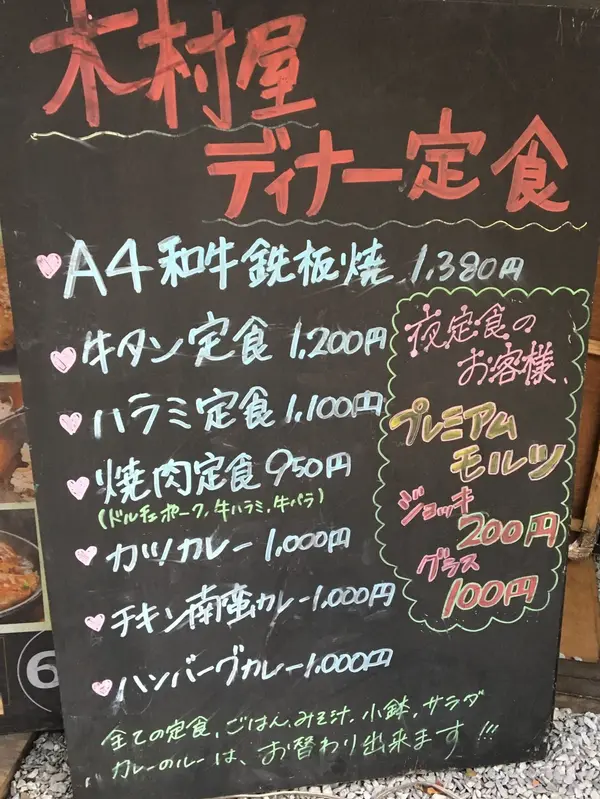 木村屋
ディナー定食
A4和牛鉄板焼 1,380円
牛タン定食 1,200円
ハラミ定食 1,100円
焼肉定食 950円
(ドルチェポーク,牛ハラミ,牛バラ)
カツカレー 1,000円
チキン南蛮カレー 1,000円
ハンバーグカレー 1,000円
夜定食の
お客様、
プレミアム
モルツ
ジョッキ
200円
グラス
100円
全ての定食、ごはん、みそ汁、小鉢、サラダ
カレーのルーは、お替わり出来ます!!!
6